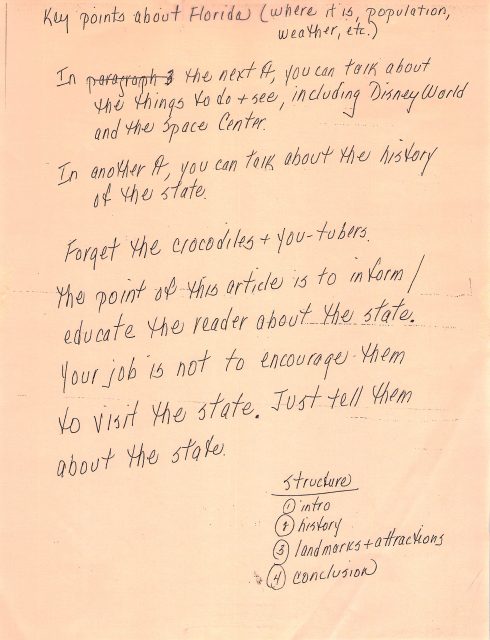 Key points about Florida (where it is, population,
weather, etc.)
In paragraph 3 the next ¶, you can talk about
the things to do + see, including Disney World
and the Space Center.
In another ¶, you can talk about the history
of the state.
Forget the crocodiles + you-tubers.
The point of this article is to inform/
educate the reader about the state.
Your job is not to encourage them
to visit the state. Just tell them
about the state.
Structure
① intro
② history
③ landmarks + attractions
④ conclusion